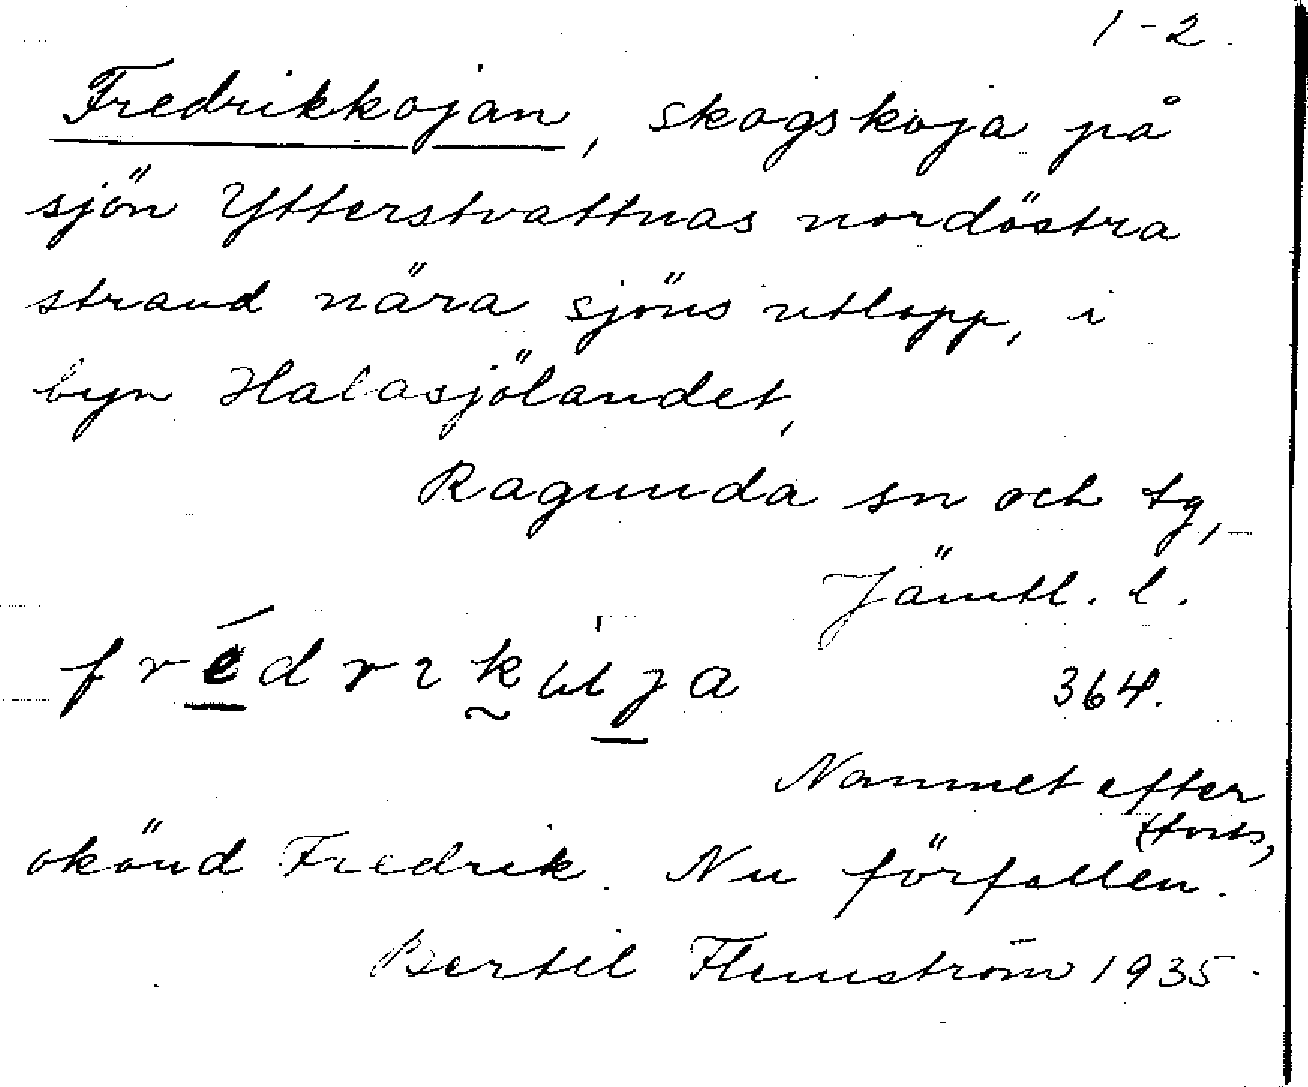 1-2.
Fredrikkojan, skogskoja på
sjön Ytterstvattnas nordöstra
strand nära sjöns utlopp, i
byn Halasjölandet,
Ragunda sn och tg,
Jämtl. l.
364.
Namnet efter
(forts,
okänd Fredrik. Nu förfallen.
Bertil Flemström 1935